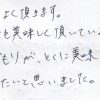 よく頂きます。
も美味しく頂いてい
もりが、とくに美味
たいと思いました。